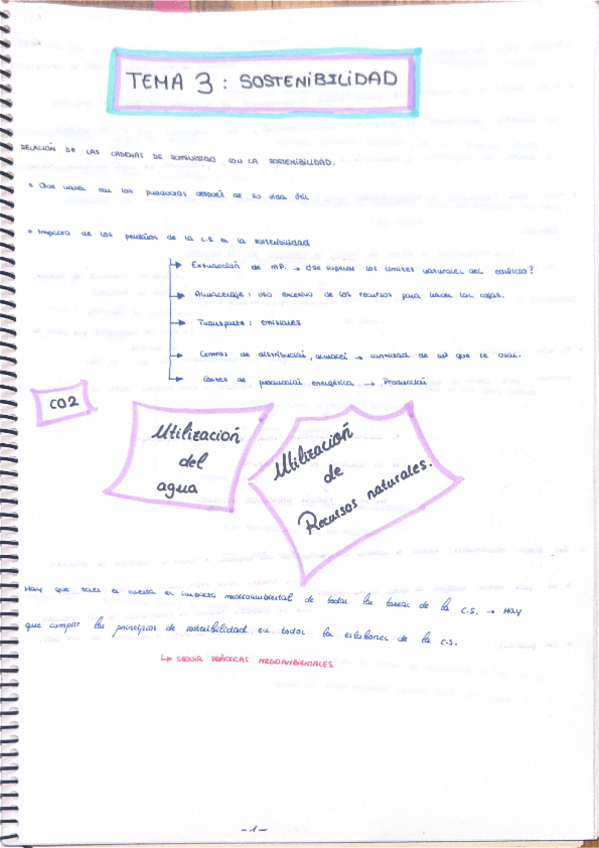 TEMA 3 : SOSTENIBILIDAD
RELACIÓN DE LAS CADENAS DE SUMINISTRO CON LA SOSTENIBILIDAD.
• Que hacer con los productos después de su vida útil
• Impacto de los de la C.S en la sostenibilidad
Extracción de MP. → ¿Se superan los límites naturales del ?
Almacenaje : uso excesivo de los recursos para hacer las cajas.
Transporte : emisiones
Centros de distribución, → cantidad de que se usa.
Costes de producción energética → Producción
CO2
Utilización
del
agua
Utilización
de
Recursos naturales.
Hay que tener en cuenta el impacto medioambiental de todas las tareas de la C.S. → Hay
que cumplir los principios de sostenibilidad en todos los eslabones de la C.S.
↳ SEGUIR PRÁCTICAS MEDIOAMBIENTALES
-1-